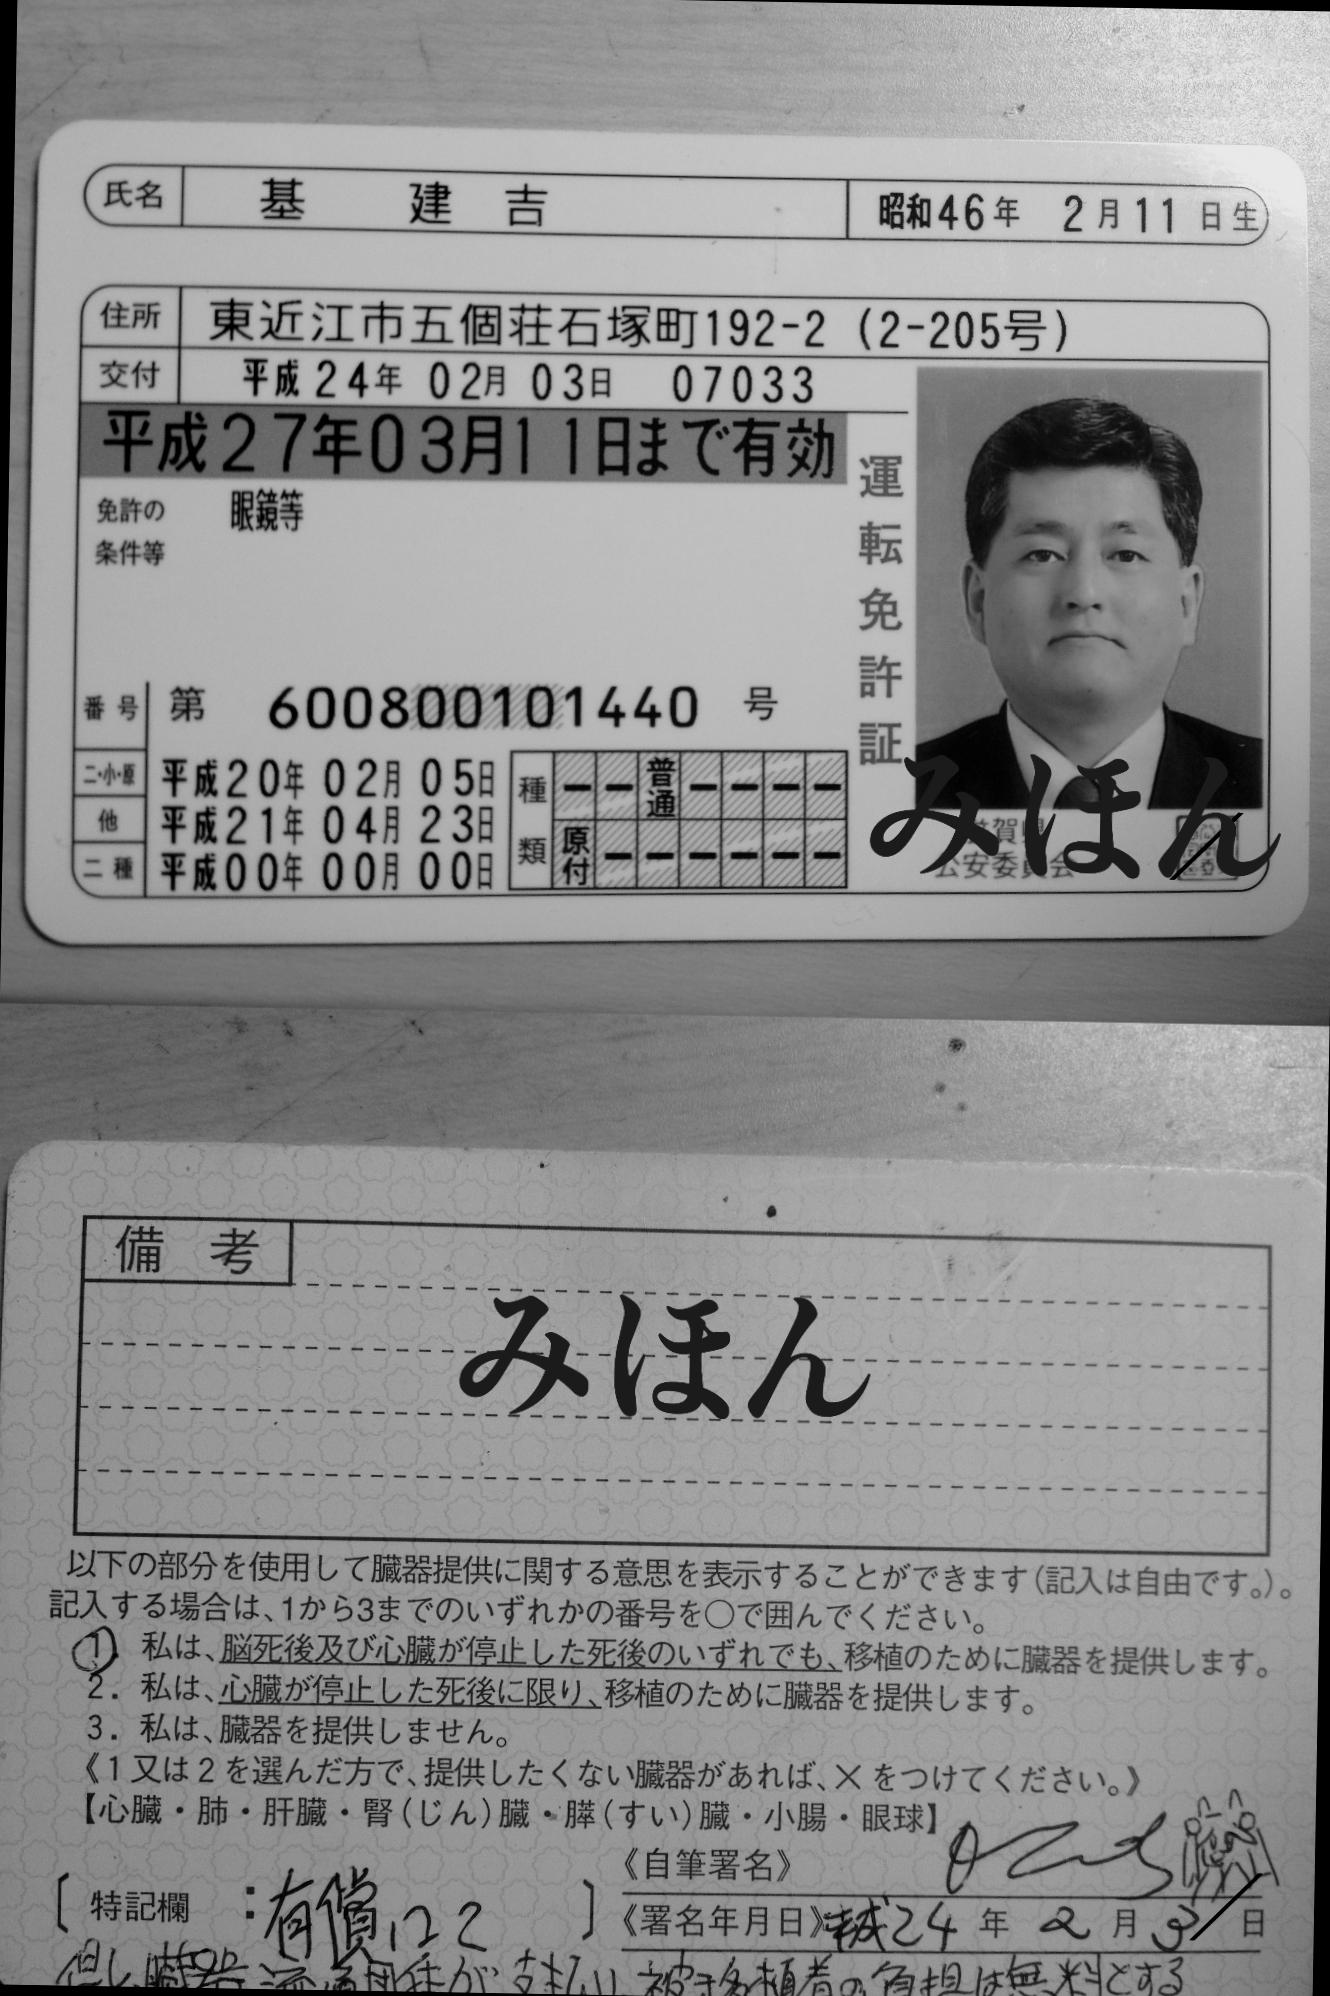 氏名 基 建 吉 昭和46年 2月11日生
住所 東近江市五個荘石塚町192-2 (2-205号)
交付 平成24年 02月 03日 07033
平成27年03月11日まで有効
免許の 眼鏡等
条件等
運転免許証
番号 第 600800101440 号
二・小・原 平成20年 02月 05日
他 平成21年 04月 23日
二種 平成00年 00月 00日
種類 － － 普通 － － － －
原付 － － － － － －
滋賀県
公安委員会
みほん
備考
みほん
以下の部分を使用して臓器提供に関する意思を表示することができます(記入は自由です。)。
記入する場合は、1から3までのいずれかの番号を○で囲んでください。
1. 私は、脳死後及び心臓が停止した死後のいずれでも、移植のために臓器を提供します。
2. 私は、心臓が停止した死後に限り、移植のために臓器を提供します。
3. 私は、臓器を提供しません。
《1又は2を選んだ方で、提供したくない臓器があれば、×をつけてください。》
【心臓・肺・肝臓・腎(じん)臓・膵(すい)臓・小腸・眼球】
《自筆署名》
〔特記欄 : 有償 〕
《署名年月日》平成24年 2月 3日
但し、臓器 が支払い、被移植者の負担は無料とする